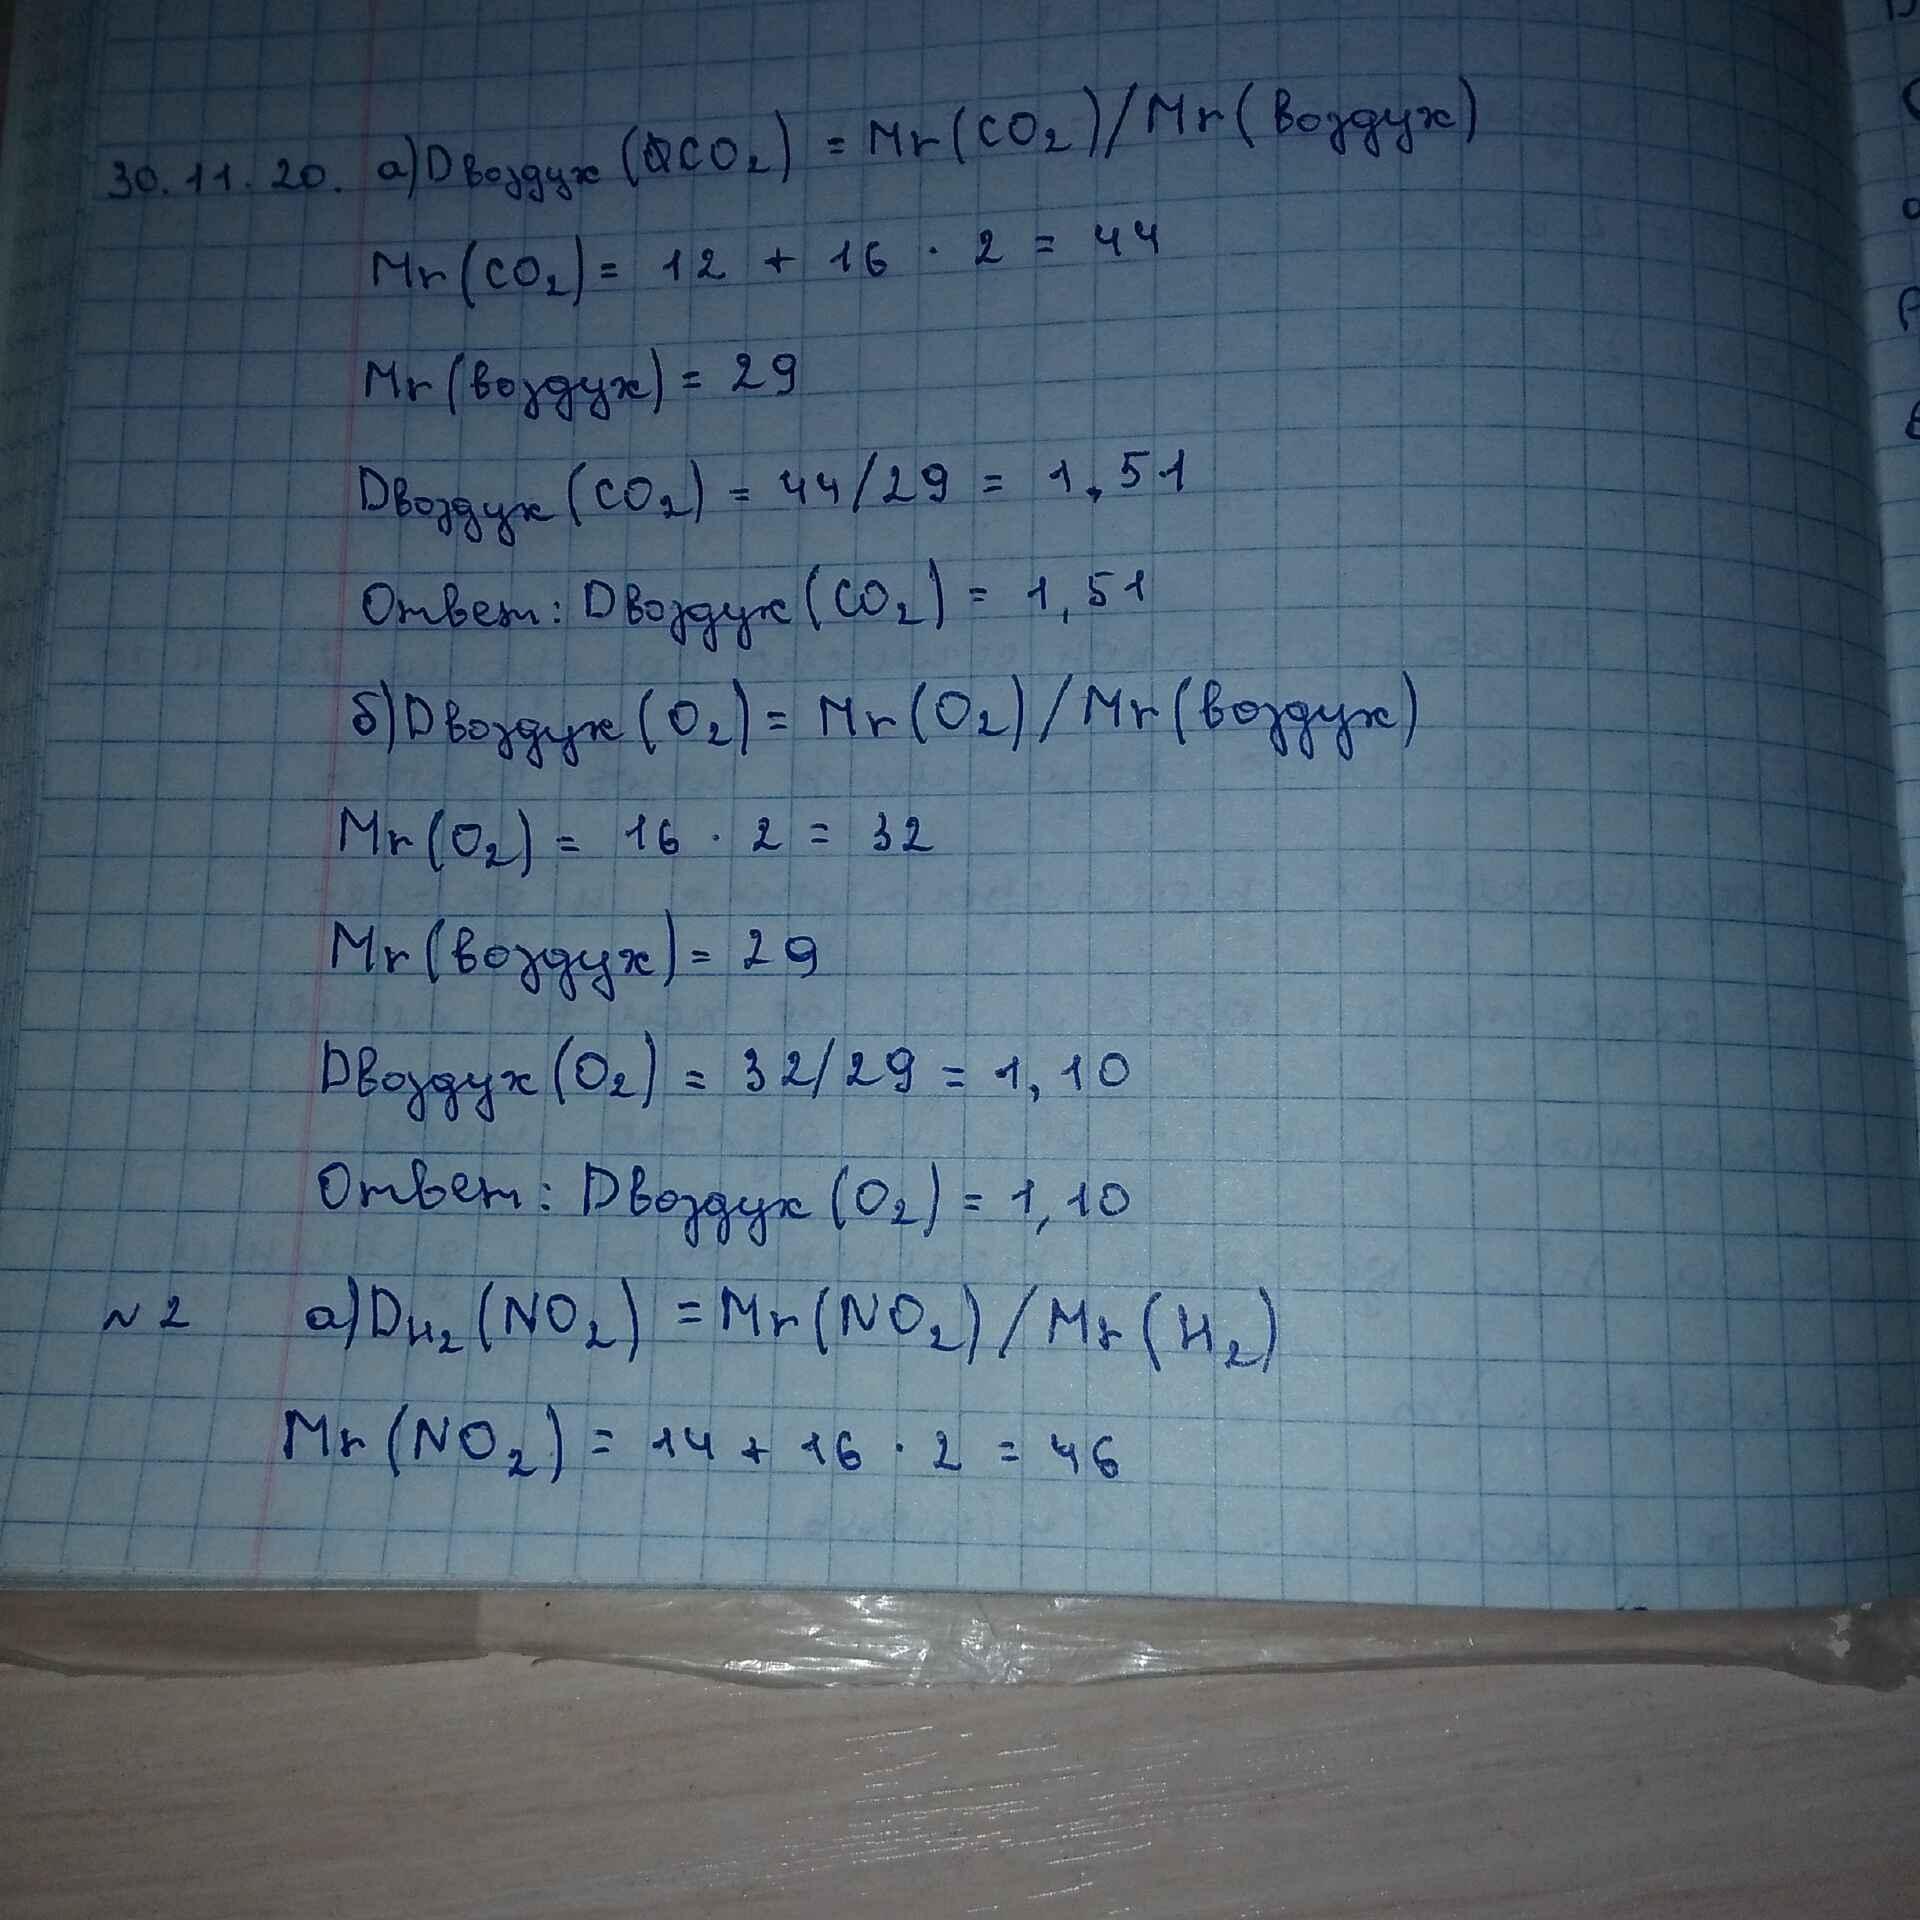 30.11.20. а) Dвоздух (CO₂) = Mr(CO₂)/Mr(воздух)
Mr(CO₂) = 12 + 16 · 2 = 44
Mr(воздух) = 29
Dвоздух(CO₂) = 44/29 = 1,51
Ответ: Dвоздух(CO₂) = 1,51
б) Dвоздух(O₂) = Mr(O₂)/Mr(воздух)
Mr(O₂) = 16 · 2 = 32
Mr(воздух) = 29
Dвоздух(O₂) = 32/29 = 1,10
Ответ: Dвоздух(O₂) = 1,10
№2 а) DH₂(NO₂) = Mr(NO₂)/Mr(H₂)
Mr(NO₂) = 14 + 16 · 2 = 46